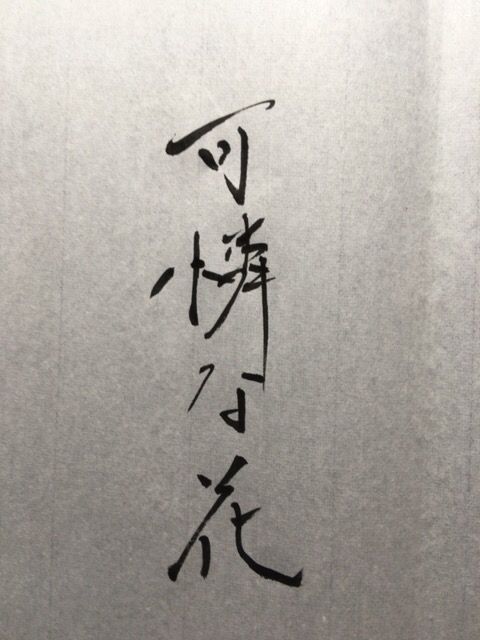 可憐な花